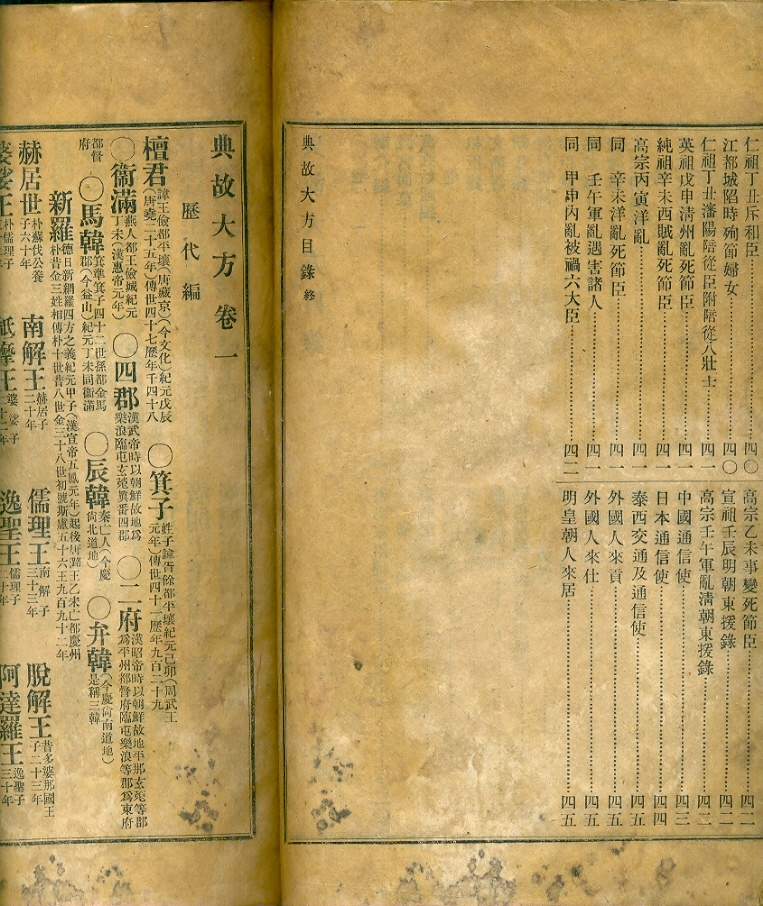 仁祖丁丑斥和臣四〇
江都城陷時殉節婦女四〇
仁祖丁丑瀋陽陪從臣附陪從八壯士四一
英祖戊申淸州亂死節臣四一
純祖辛未西賊亂死節臣四一
高宗丙寅洋亂四一
同 辛未洋亂死節臣四一
同 壬午軍亂遇害諸人四一
同 甲申內亂被禍六大臣四二
高宗乙未事變死節臣四二
宣祖壬辰明朝東援錄四二
高宗壬午軍亂淸朝東援錄四二
中國通信使四三
日本通信使四四
泰西交通及通信使四五
外國人來貢四五
外國人來仕四五
明皇朝人來居四五
典故大方目錄終
典故大方卷一
歷代編
檀君諱王儉都平壤(唐藏京)(今文化)紀元戊辰唐堯二十五年)傳世四十七歷年千四十八〇箕子姓子諱胥餘都平壤紀元己卯(周武王元年)傳世四十二歷年九百二十九
〇衞滿燕人都王儉城紀元丁未(漢惠帝元年)〇四郡漢武帝時以朝鮮故地爲樂浪臨屯玄菟眞番四郡〇二府漢昭帝時以朝鮮故地平那玄菟等郡爲平州都督府臨屯樂浪等郡爲東府
都督府〇馬韓箕準箕子四十二世孫都金馬郡(今益山)紀元丁未同衞滿〇辰韓秦亡人(今慶尙北道地)〇弁韓(今慶尙南道地)是稱三韓
新羅德日新網羅四方之義紀元甲子(漢宣帝五鳳元年)起後唐潞王乙未亡都慶州朴昔金三姓相傳朴十世昔八世金三十八世初號斯盧五十六王九百九十二年
赫居世朴蘇伐公養子六十年 南解王赫居子二十年 儒理王南解子三十三年 脫解王昔多婆那國王子二十三年
婆娑王朴儒理子 祇摩王婆娑子二十二年 逸聖王儒理子二十年 阿達羅王逸聖子三十年